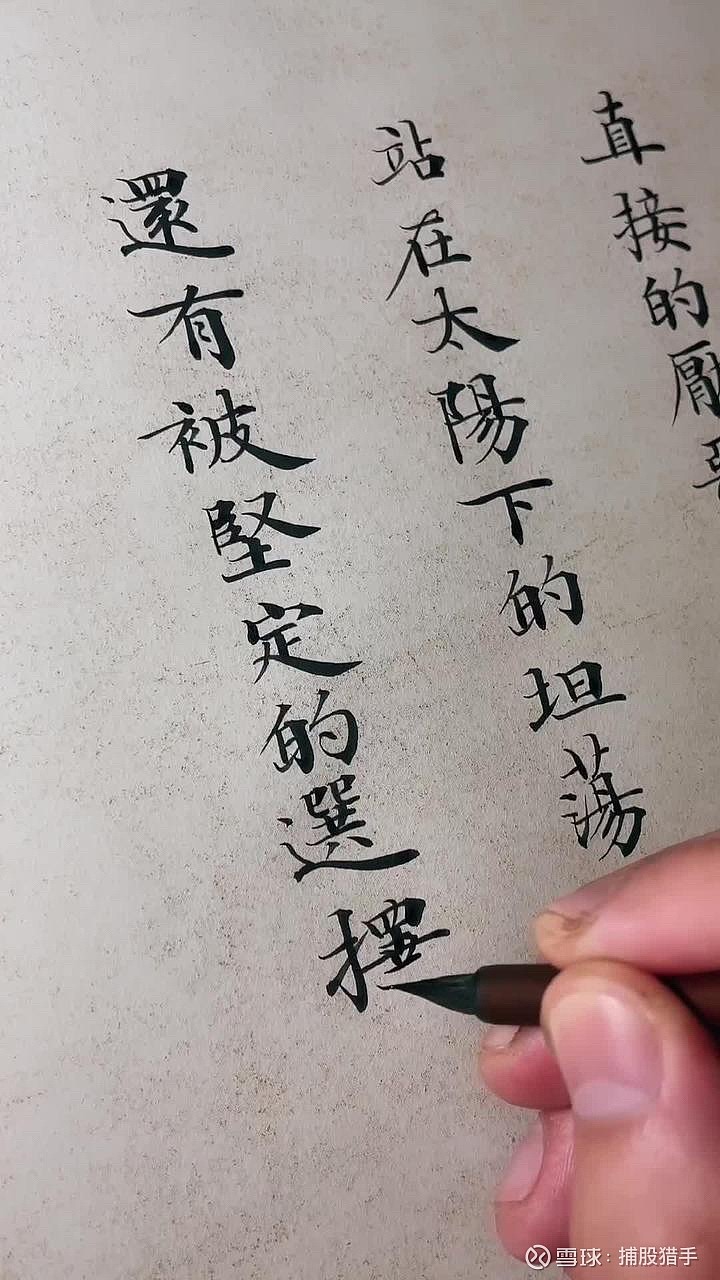 直接的厭惡
站在太陽下的坦蕩
還有被堅定的選擇
雪球：捕股猎手